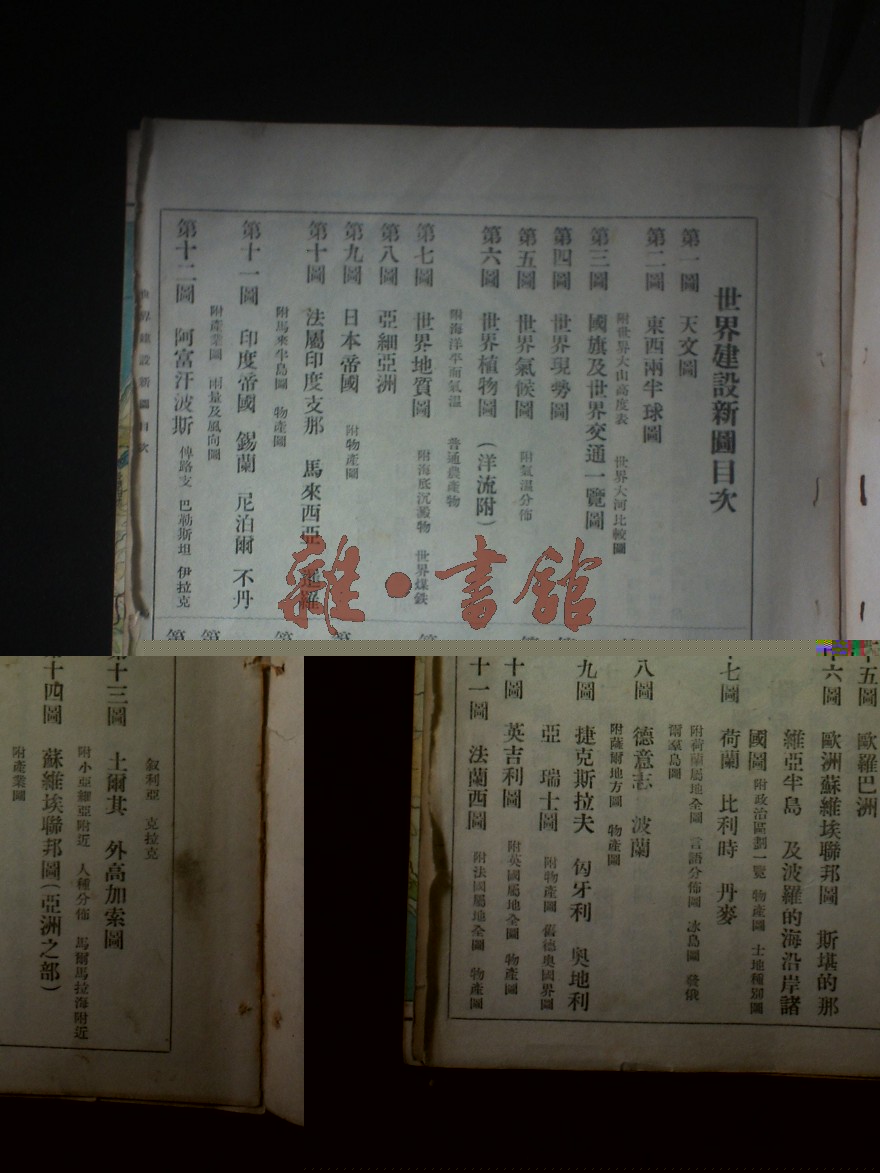 世界建設新圖目次
第一圖 天文圖
第二圖 東西兩半球圖
附世界大山高度表 世界大河比較圖
第三圖 國旗及世界交通一覽圖
第四圖 世界現勢圖
第五圖 世界氣候圖 附氣溫分佈
第六圖 世界植物圖(洋流附)
附海洋平面氣溫 普通農產物
第七圖 世界地質圖 附海底沉澱物 世界煤鉄
第八圖 亞細亞洲
第九圖 日本帝國 附物產圖
第十圖 法屬印度支那 馬來西亞 暹羅
附馬來半島圖 物產圖
第十一圖 印度帝國 錫蘭 尼泊爾 不丹
附產業圖 雨量及風向圖
第十二圖 阿富汗波斯 俾路支 巴勒斯坦 伊拉克
世界建設新圖目次
雜·書館
叙利亞 克拉克
十三圖 土爾其 外高加索圖
附小亞細亞附近 人種分佈 馬爾馬拉海附近
十四圖 蘇維埃聯邦圖(亞洲之部)
附產業圖
十五圖 歐羅巴洲
十六圖 歐洲蘇維埃聯邦圖 斯堪的那
維亞半島 及波羅的海沿岸諸
國圖 附政治區劃一覽 物產圖 土地種別圖
十七圖 荷蘭 比利時 丹麥
附荷蘭屬地全圖 言語分佈圖 冰島圖 發俄
爾羣島圖
八圖 德意志 波蘭
附薩爾地方圖 物產圖
九圖 捷克斯拉夫 匈牙利 奧地利
亞 瑞士圖 附物產圖 舊德奧國界圖
十圖 英吉利圖 附英國屬地全圖 物產圖
十一圖 法蘭西圖 附法國屬地全圖 物產圖